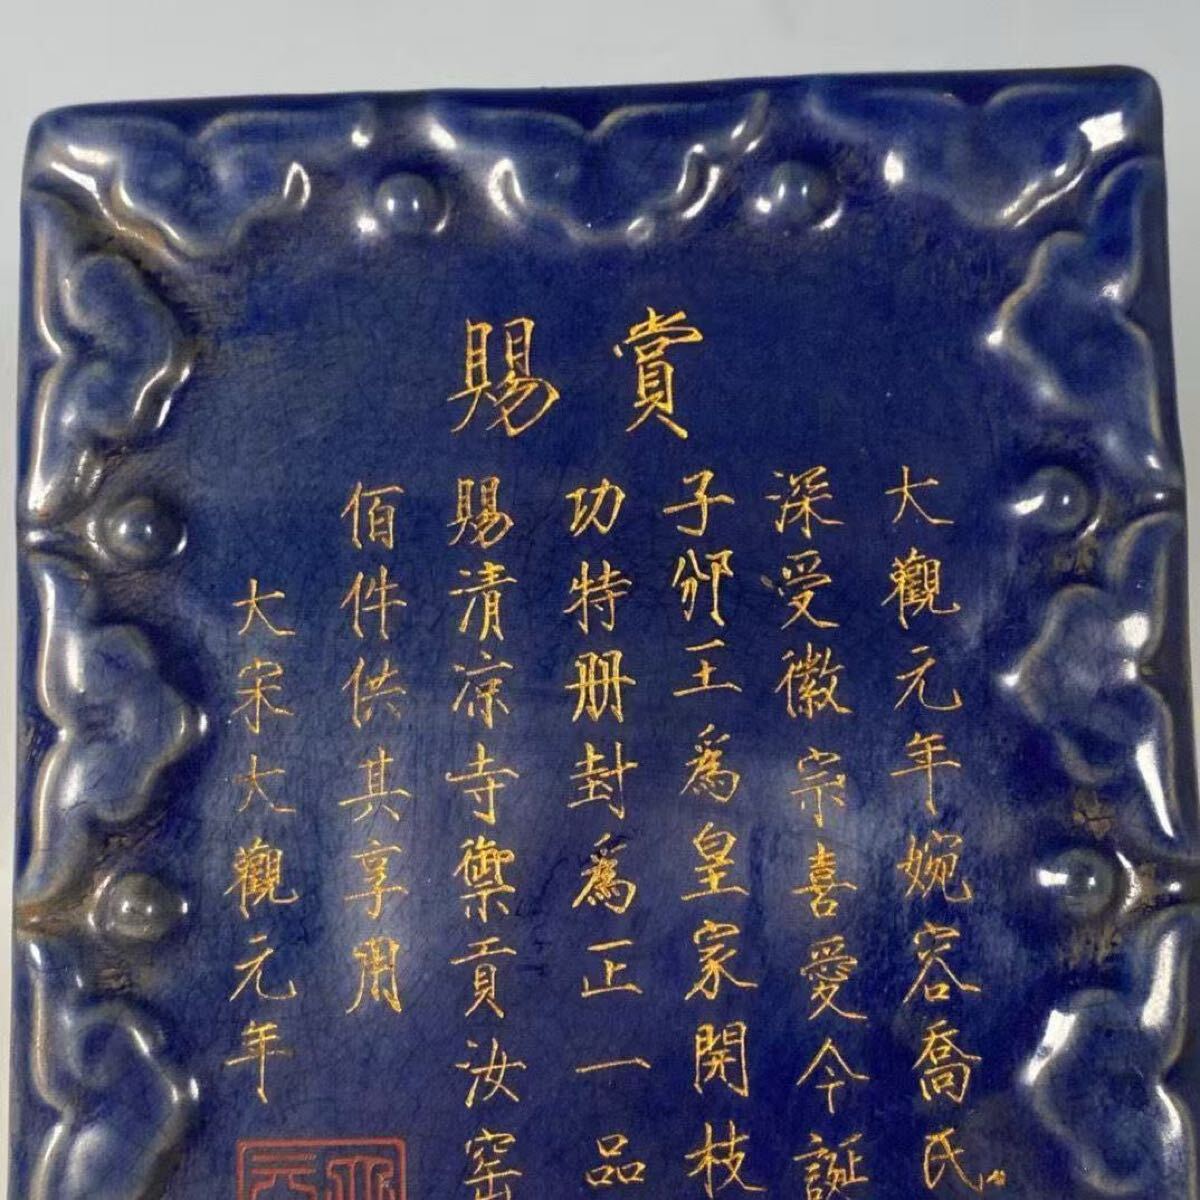 賞賜
大觀元年婉容喬氏
深受徽宗喜愛今誕
子邠王為皇家開枝
功特册封為正一品
賜清凉寺禦貢汝窑
佰件供其享用
大宋大觀元年